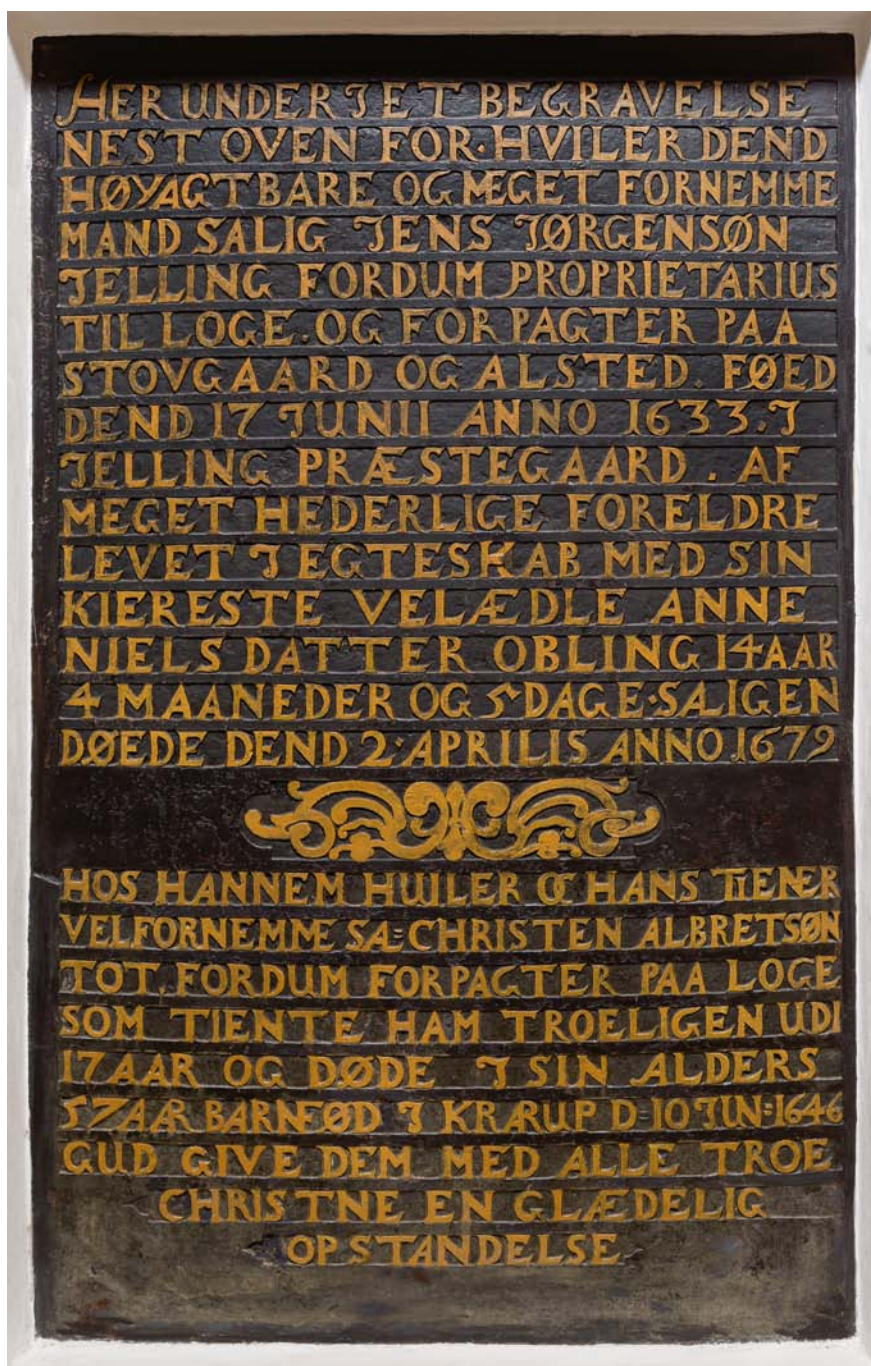 HER UNDER I ET BEGRAVELSE
NEST OVEN FOR· HVILER DEND
HØYAGTBARE OG MEGET FORNEMME
MAND SALIG JENS JØRGENSØN
JELLING FORDUM PROPRIETARIUS
TIL LOGE. OG FORPAGTER PAA
STOVGAARD OG ALSTED. FØED
DEND 17 JUNII ANNO 1633. I
JELLING PRÆSTEGAARD. AF
MEGET HEDERLIGE FORELDRE
LEVET I EGTESKAB MED SIN
KIERESTE VELÆDLE ANNE
NIELSDATTER OBLING 14 AAR
4 MAANEDER OG 5 DAGE· SALIGEN
DØEDE DEND 2· APRILIS ANNO 1679
HOS HANNEM HUILER OC HANS TIENER
VELFORNEMME SA= CHRISTEN ALBRETSØN
TOT, FORDUM FORPAGTER PAA LOGE
SOM TIENTE HAM TROELIGEN UDI
17 AAR OG DØDE I SIN ALDERS
57 AAR BARNFØD I KRÆRUP D= 10 JUN= 1646
GUD GIVE DEM MED ALLE TROE
CHRISTNE EN GLÆDELIG
OPSTANDELSE